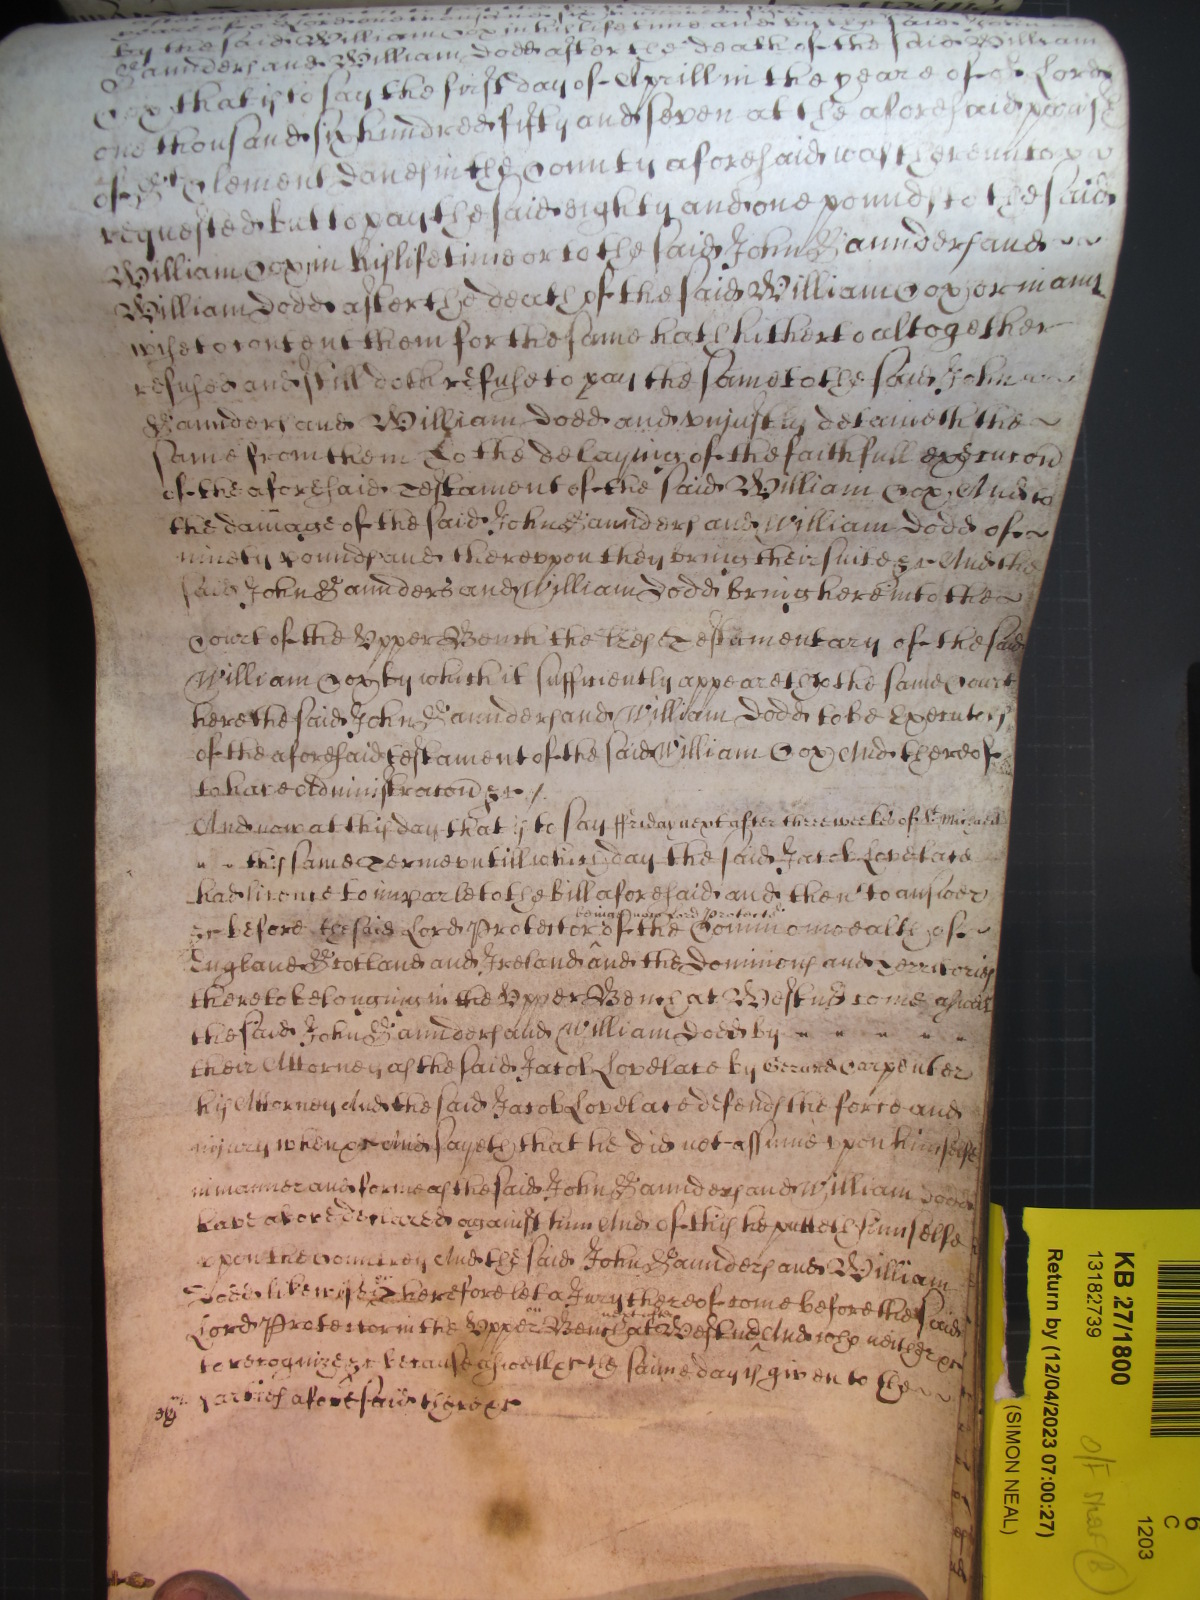 by the said William Cox in his life time and by the said John
Saunders and William Dodd after the death of the said William
Cox that is to say the first day of Aprill in the yeare of or Lord
one thousand six hundred fifty and seven at the aforesaid parish
of St Clement Danes in the County aforesaid was thereunto
requested but to pay the said eighty and one pounds to the said
William Cox in his life time or to the said John Saunders and
William Dodd after the death of the said William Cox or in any
wise to content them for the same hath hitherto altogether
refused and still doth refuse to pay the same to the said John
Saunders and William Dodd and unjustly detaineth the
same from them To the delaying of the faithfull execucon
of the aforesaid Testament of the said William Cox And to
the damage of the said John Saunders and William Dodd of
ninety pounds and thereupon they bring their suite &c And the
said John Saunders and William Dodd bring here into the
Court of the Upper Bench the lres Testamentary of the said
William Cox by which it sufficiently appeareth to the same Court
here the said John Saunders and William Dodd to be Executors
of the aforesaid testament of the said William Cox And thereof
to have Administracon &c /
And now at this day that is to say ffriday next after three weekes of St Michaell
this same Terme untill which day the said Jacob Lovelace
had licence to imparle to the bill aforesaid and then to answer
being now Lord Protector
&c before the said Lord Protector of the Commonwealth of
England Scotland and Ireland and the Dominions and Territories
thereto belonging in the Upper Bench at Westmr come aswell
the said John Saunders and William Dodd by
their Attorney as the said Jacob Lovelace by Gerard Carpenter
his Attorney And the said Jacob Lovelace defends the force and
injury when &c and sayeth that he did not assume upon himselfe
in manner and forme as the said John Saunders and William Dodd
have above declared against him And of this he putteth himselfe
upon the Countrey And the said John Saunders and William
Dodd likewise &c Therefore let a Jury thereof come before the said
Lord Protector in the Upper Bench at Westmr And who neither &c
to recognize &c because aswell &c the same day is given to the
parties aforesaid there &c
KB 27/1800
13182739
Return by (12/04/2023 07:00:27)
(SIMON NEAL)
6
C
1203